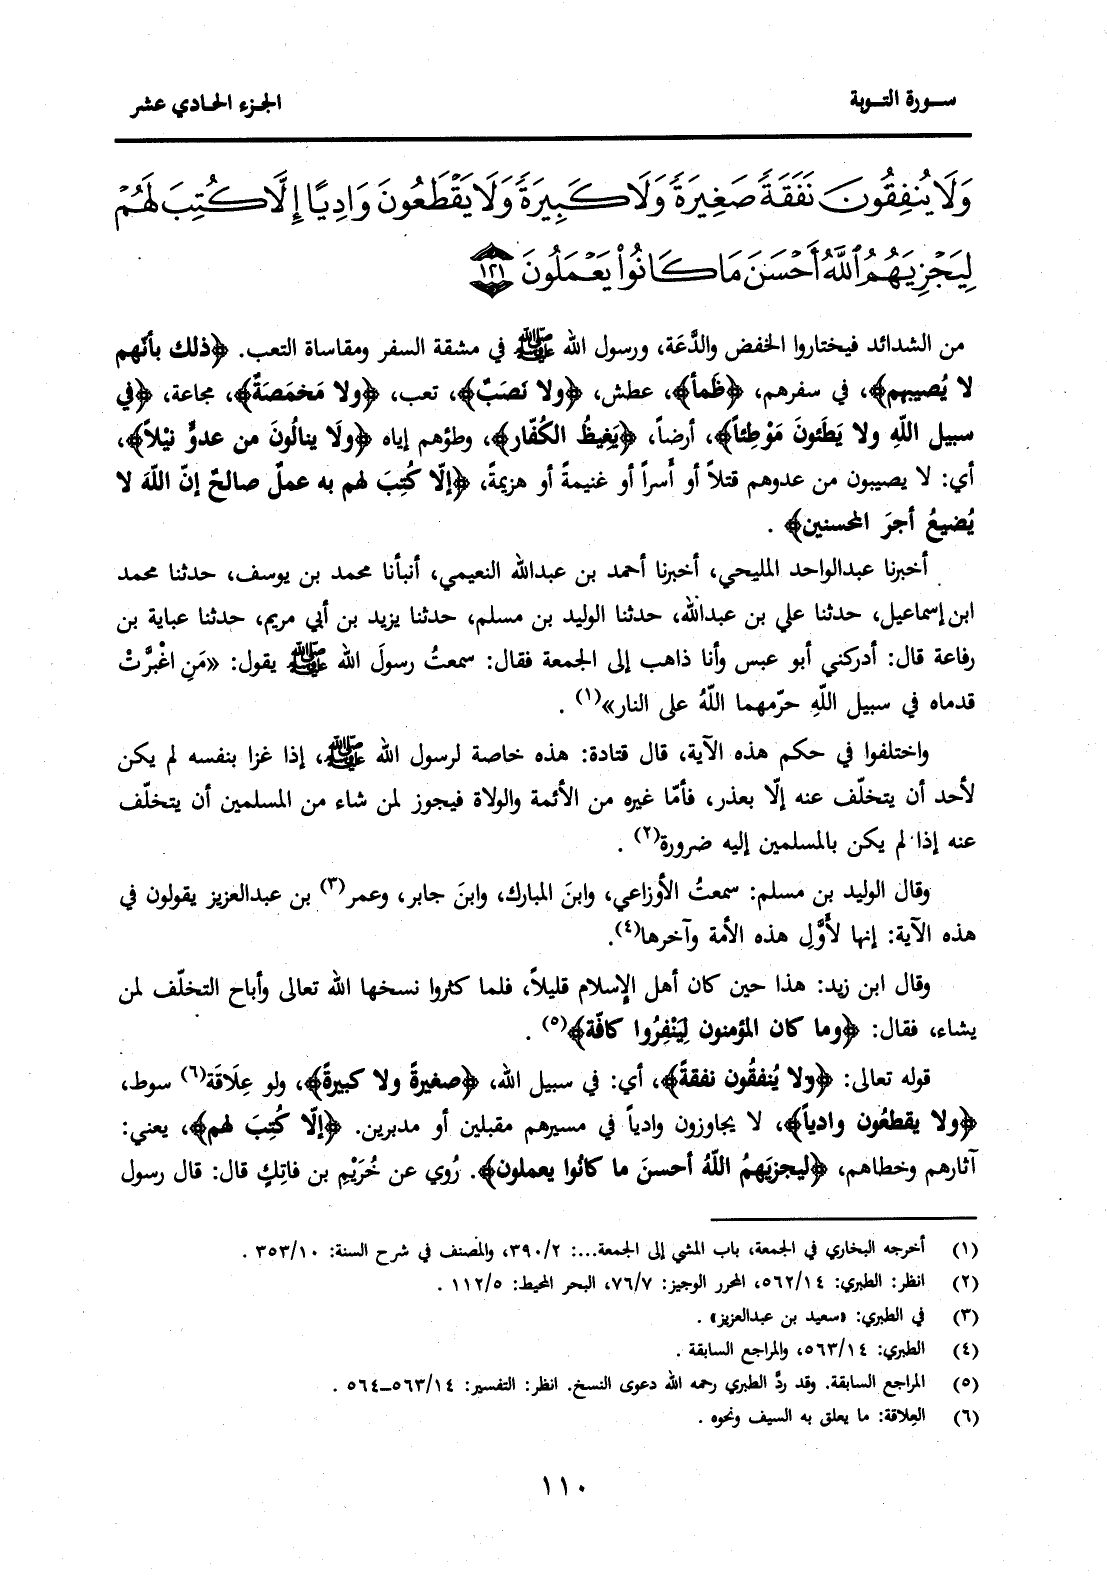 سورة التوبة
الجزء الحادي عشر
وَلَا يُنفِقُونَ نَفَقَةً صَغِيرَةً وَلَا كَبِيرَةً وَلَا يَقْطَعُونَ وَادِيًا إِلَّا كُتِبَ لَهُمْ
لِيَجْزِيَهُمُ ٱللَّهُ أَحْسَنَ مَا كَانُوا۟ يَعْمَلُونَ ١٢١
من الشدائد فيختاروا الخفض والدَّعَة، ورسول الله ﷺ في مشقة السفر ومقاساة التعب. ﴿ذلك بأنّهم
لا يُصيبهم﴾، في سفرهم، ﴿ظَمأ﴾، عطش، ﴿ولا نَصَبٌ﴾، تعب، ﴿ولا مَخمَصَةٌ﴾، مجاعة، ﴿في
سبيل اللّهِ ولا يَطَئونَ مَوْطِئاً﴾، أرضاً، ﴿يَغيظُ الكُفّار﴾، وطؤهم إياه ﴿ولَا ينالُونَ من عدوٍّ نيْلاً﴾،
أي: لا يصيبون من عدوهم قتلاً أو أَسراً أو غنيمةً أو هزيمةً، ﴿إلّا كُتِبَ لهم به عملٌ صالحٌ إنّ اللّهَ لا
يُضيعُ أجرَ المحسنين﴾ .
أخبرنا عبدالواحد المليحي، أخبرنا أحمد بن عبدالله النعيمي، أنبأنا محمد بن يوسف، حدثنا محمد
ابن إسماعيل، حدثنا علي بن عبدالله، حدثنا الوليد بن مسلم، حدثنا يزيد بن أبي مريم، حدثنا عباية بن
رفاعة قال: أدركني أبو عبس وأنا ذاهب إلى الجمعة فقال: سمعتُ رسولَ الله ﷺ يقول: «مَنِ اغْبرَّتْ
قدماه في سبيل اللّهِ حرّمهما اللّهُ على النار»(١) .
واختلفوا في حكم هذه الآية، قال قتادة: هذه خاصة لرسول الله ﷺ، إذا غزا بنفسه لم يكن
لأحد أن يتخلّف عنه إلّا بعذر، فأمّا غيره من الأئمة والولاة فيجوز لمن شاء من المسلمين أن يتخلّف
عنه إذا لم يكن بالمسلمين إليه ضرورة(٢) .
وقال الوليد بن مسلم: سمعتُ الأوزاعي، وابنَ المبارك، وابنَ جابر، وعمر(٣) بن عبدالعزيز يقولون في
هذه الآية: إنها لأَوَّلِ هذه الأمة وآخرها(٤).
وقال ابن زيد: هذا حين كان أهل الإسلام قليلاً، فلما كثروا نسخها الله تعالى وأباح التخلّف لمن
يشاء، فقال: ﴿وما كان المؤمنون لِيَنْفِرُوا كافّة﴾(٥) .
قوله تعالى: ﴿ولا يُنفقُون نفقةً﴾، أي: في سبيل الله، ﴿صغيرةً ولا كبيرةً﴾، ولو عِلَاقَة(٦) سوط،
﴿ولا يقطعُون وادياً﴾، لا يجاوزون وادياً في مسيرهم مقبلين أو مدبرين. ﴿إلّا كُتِبَ لهم﴾، يعني:
آثارهم وخطاهم، ﴿ليجزيَهمُ اللّهُ أحسنَ ما كانُوا يعملون﴾. رُوي عن خُرَيْمِ بن فاتِكٍ قال: قال رسول
(١) أخرجه البخاري في الجمعة، باب المشي إلى الجمعة...: ٢/٣٩٠، والمصنف في شرح السنة: ١٠/٣٥٣ .
(٢) انظر: الطبري: ١٤/٥٦٢، المحرر الوجيز: ٧/٧٦، البحر المحيط: ٥/١١٢ .
(٣) في الطبري: «سعيد بن عبدالعزيز» .
(٤) الطبري: ١٤/٥٦٣، والمراجع السابقة .
(٥) المراجع السابقة. وقد ردَّ الطبري رحمه الله دعوى النسخ. انظر: التفسير: ١٤/٥٦٣ــ٥٦٤ .
(٦) العِلاقة: ما يعلق به السيف ونحوه .
١١٠